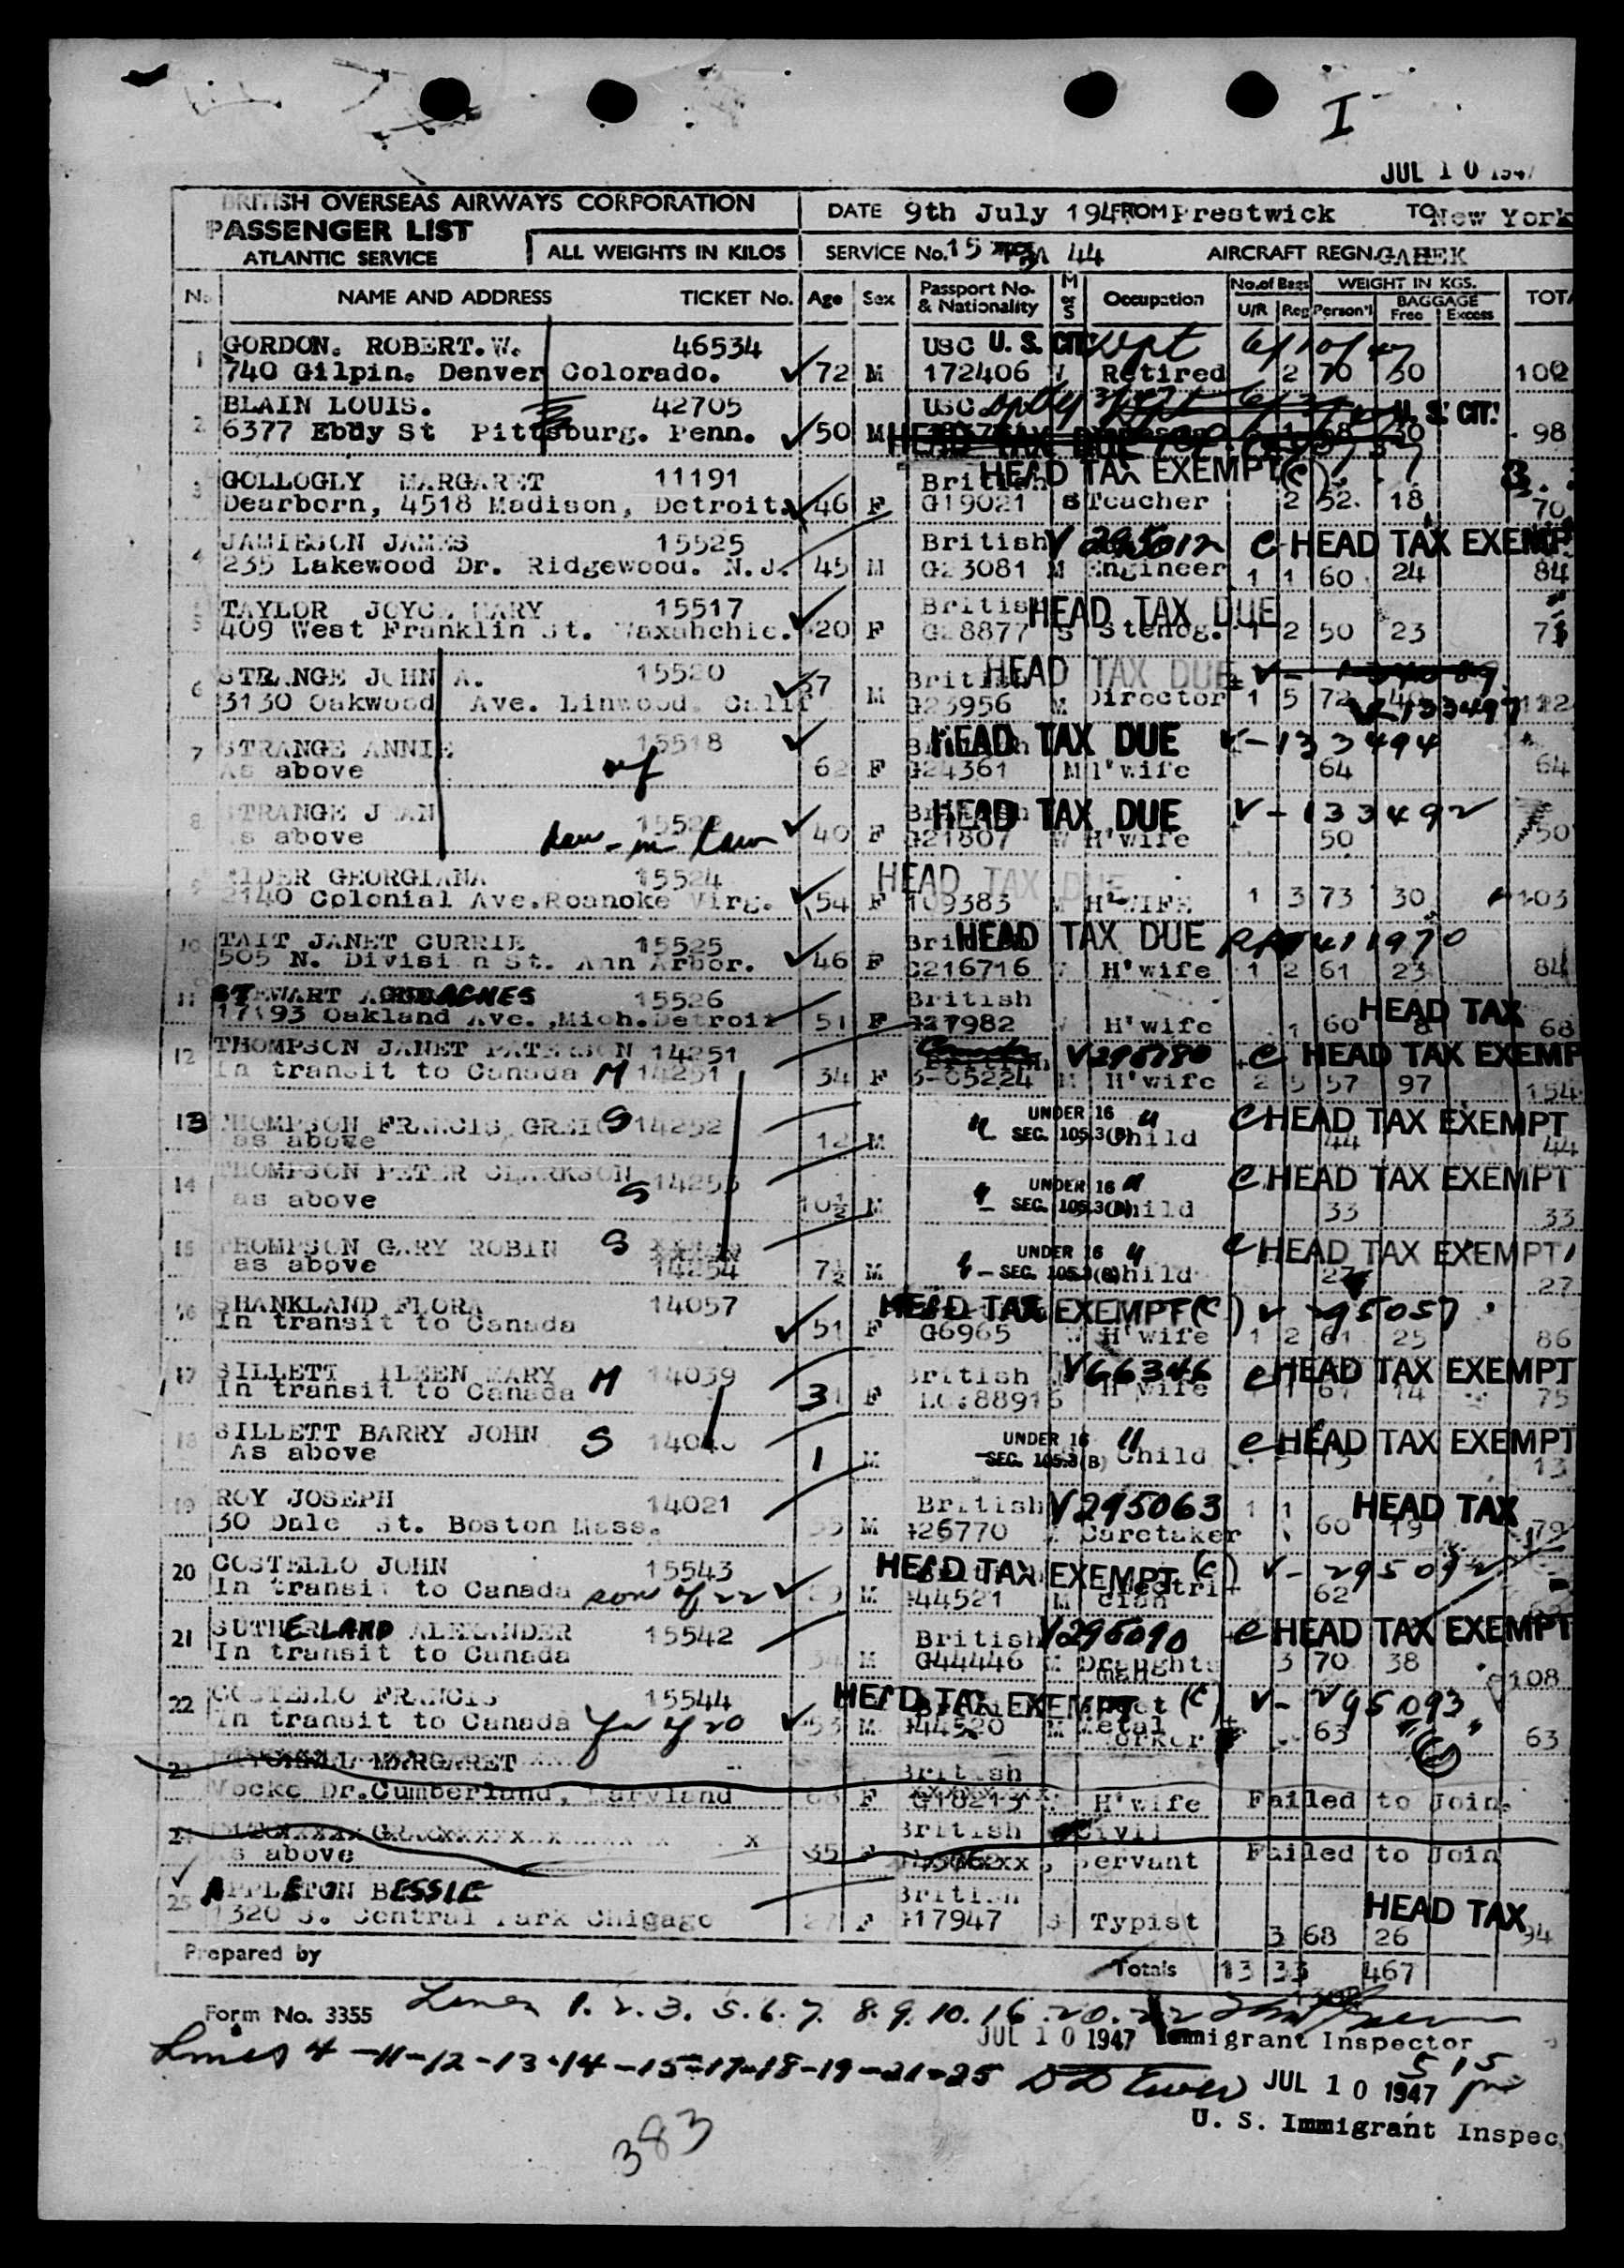 I
JUL 10 1947
BRITISH OVERSEAS AIRWAYS CORPORATION
PASSENGER LIST
ATLANTIC SERVICE
ALL WEIGHTS IN KILOS
DATE 9th July 194 FROM Prestwick TO New York
SERVICE No. 15 44 AIRCRAFT REGN. GAHEK
No. NAME AND ADDRESS TICKET No. Age Sex Passport No. & Nationality M or S Occupation No. of Bags U/R Reg WEIGHT IN KGS. Person'l BAGGAGE Free Excess TOTA
1 GORDON. ROBERT.W. 46534 USC U. S. CIT.
740 Gilpin. Denver Colorado. 72 M 172406 Retired 2 70 30 100
2 BLAIN LOUIS. 42705 USC U. S. CIT.
6377 Ebdy St Pittsburg. Penn. 50 M HEAD TAX DUE 98
3 GOLLOGLY MARGARET 11191 British HEAD TAX EXEMPT (C)
Dearborn, 4518 Madison, Detroit. 46 F G19021 S Teacher 2 52. 18 70
4 JAMIESON JAMES 15525 British V 295012 C HEAD TAX EXEMP
235 Lakewood Dr. Ridgewood. N.J. 45 M G23081 M Engineer 1 1 60 24 84
5 TAYLOR JOYCE MARY 15517 British HEAD TAX DUE
409 West Franklin St. Waxahchie. 20 F G28877 S Stenog. 1 2 50 23
6 STRANGE JOHN A. 15520 British HEAD TAX DUE
3130 Oakwood Ave. Linwood. Calif 7 M G23956 M Director 1 5 72 40 V-133497 112
7 STRANGE ANNIE 15518 HEAD TAX DUE V-133494
As above 62 F G24361 M H'wife 64 64
8 STRANGE JEAN HEAD TAX DUE V-133492
As above 40 F G21807 W H'wife 50 50
9 ELDER GEORGIANA 15524 HEAD TAX DUE
2140 Colonial Ave.Roanoke Virg. 54 F 109383 M H'WIFE 1 3 73 30 103
10 TAIT JANET CURRIE 15525 HEAD TAX DUE 411970
505 N. Division St. Ann Arbor. 46 F G216716 H'wife 1 2 61 23 84
11 STEWART AGNES 15526 British HEAD TAX
17193 Oakland Ave.,Mich.Detroit 51 F 27982 H'wife 1 60 8 68
12 THOMPSON JANET PATERSON 14251 V295780 C HEAD TAX EXEMP
In transit to Canada M 14251 34 F 3-05224 M H'wife 2 5 57 97 154
13 THOMPSON FRANCIS GREIG S 14252 UNDER 16 C HEAD TAX EXEMPT
as above 12 M SEC. 105.3(B) Child 44 44
14 THOMPSON PETER CLARKSON S 14253 UNDER 16 C HEAD TAX EXEMPT
as above 10½ M SEC. 105.3(B) Child 33 33
15 THOMPSON GARY ROBIN S UNDER 16 C HEAD TAX EXEMPT
as above 14254 7½ M SEC. 105.3(B) Child 27 27
16 SHANKLAND FLORA 14057 HEAD TAX EXEMPT (C) V 95057
In transit to Canada 51 F G6965 W H'wife 1 2 61 25 86
17 SILLETT ILEEN MARY M 14039 British V66346 C HEAD TAX EXEMPT
In transit to Canada 31 F 88916 H'wife 61 14 75
18 SILLETT BARRY JOHN S UNDER 16 C HEAD TAX EXEMPT
As above 1 M SEC. 105.3(B) Child 13 13
19 ROY JOSEPH 14021 British V295063 1 1 HEAD TAX
30 Dale St. Boston Mass. M G26770 Caretaker 60 19 79
20 COSTELLO JOHN 15543 HEAD TAX EXEMPT (C) V- 295092
In transit to Canada son of 22 29 M G44521 M Electrician 62
21 SUTHERLAND ALEXANDER 15542 British V295090 C HEAD TAX EXEMPT
In transit to Canada 34 M G44446 M Draughtsman 3 70 38 108
22 COSTELLO FRANCIS 15544 HEAD TAX EXEMPT (C) V- 295093
In transit to Canada 53 M G44520 M Sheet Metal Worker 63 63
23 MARGARET British
Vocke Dr.Cumberland, Maryland F G18213 H'wife Failed to Join.
24 British Civil
As above 35 F Servant Failed to Join
25 APPLETON BESSIE British HEAD TAX
1320 S. Central Park Chigago 27 F 17947 S Typist 3 68 26 94
Prepared by Totals 13 33 467
Form No. 3355 Lines 1. 2. 3. 5. 6. 7. 8. 9. 10. 16. 20. 22
JUL 10 1947 Immigrant Inspector
Lines 4-11-12-13-14-15-17-18-19-21-25 JUL 10 1947 5 15 pm
U. S. Immigrant Inspec
383